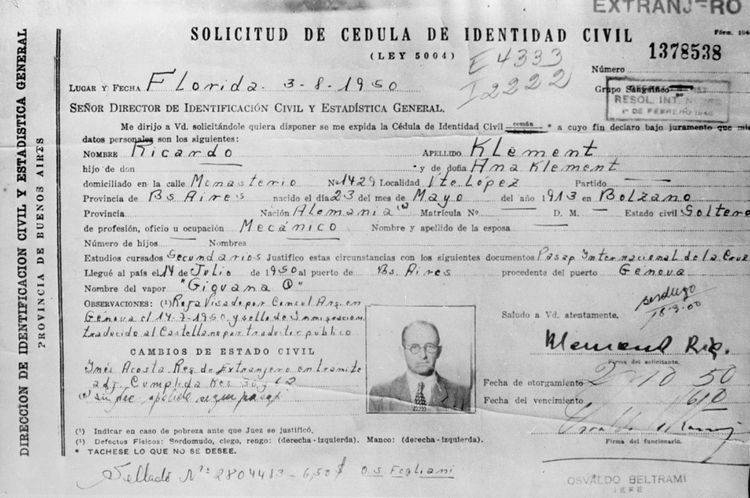 EXTRANJERO
SOLICITUD DE CEDULA DE IDENTIDAD CIVIL
(LEY 5004)
Fórm. 104
E4333
I2222
Número
1378538
LUGAR Y FECHA Florida. 3-8-1950
Grupo Sanguíneo
RESOL. INT. Nº
1º DE FEBRERO 1946
SEÑOR DIRECTOR DE IDENTIFICACIÓN CIVIL Y ESTADÍSTICA GENERAL.
Me dirijo a Vd. solicitándole quiera disponer se me expida la Cédula de Identidad Civil común * a cuyo fin declaro bajo juramento que mis
datos personales son los siguientes:
NOMBRE Ricardo APELLIDO Klement
hijo de don y de doña Ana Klement
domiciliado en la calle Monasterio Nº 1429 Localidad Vte López Partido
Provincia de Bs Aires nacido el día 23 del mes de Mayo del año 1913 en Bolzano
Provincia Nación Alemania Matrícula Nº D. M. Estado civil Soltero
de profesión, oficio u ocupación Mecánico Nombre y apellido de la esposa
Número de hijos Nombres
Estudios cursados Secundarios Justifico estas circunstancias con los siguientes documentos Pasap Internacional de la Cruz
Llegué al país el 14 de Julio de 1950 al puerto de Bs. Aires procedente del puerto Genova
Nombre del vapor "Giovana C"
OBSERVACIONES: (1) Roja Visado por Consul Arg. en
Genova el 14-7-1950, y sello de Inmigracion
traducido al Castellano por traductor publico
Saludo a Vd. atentamente.
CAMBIOS DE ESTADO CIVIL
Firma del solicitante.
Inés Acosta Reg. de Extranjero en tramite
Fecha de otorgamiento 2 10 50
Fecha de vencimiento
(1) Indicar en caso de pobreza ante que Juez se justificó.
(2) Defectos Físicos: Sordomudo, ciego, rengo: (derecha-izquierda). Manco: (derecha-izquierda).
* TACHESE LO QUE NO SE DESEE.
Firma del funcionario.
Sellado Nº 2804413 - 6,50$ O.S. Fogliani
OSVALDO BELTRAMI
JEFE
DIRECCION DE IDENTIFICACION CIVIL Y ESTADISTICA GENERAL
PROVINCIA DE BUENOS AIRES